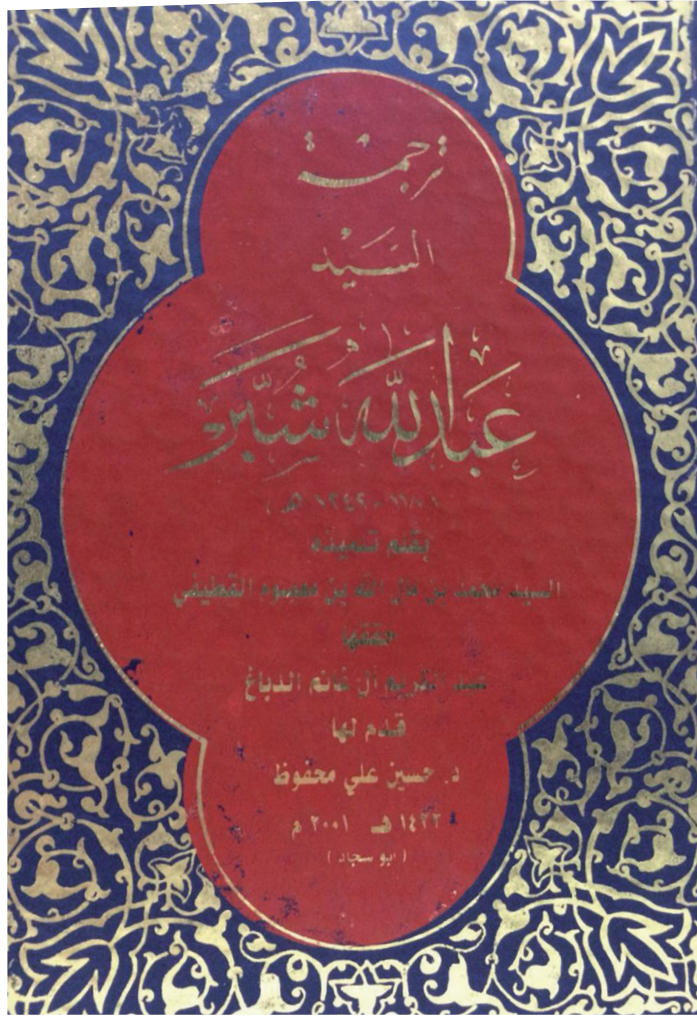 ترجمة
السَّيِّد
عَبْدُ اللّٰه شُبَّر
( ١١٨٨-١٢٤٢ هـ )
بقلم تلميذه
السيد محمد بن مال الله بن معصوم القطيفي
حققها
عبد الكريم آل غانم الدباغ
قدم لها
د. حسين علي محفوظ
١٤٢٢ هـ ٢٠٠١ م
( ابو سجاد )